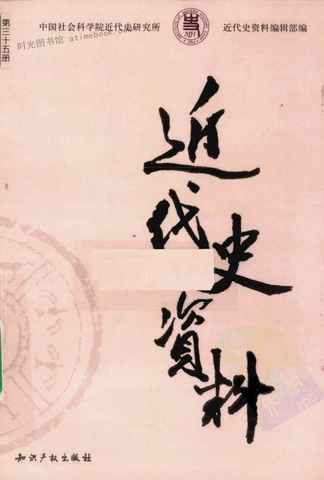 中国社会科学院近代史研究所
近代史资料编辑部编
第三十五册
时光图书馆 atimebook.c
近代史資料
知识产权出版社